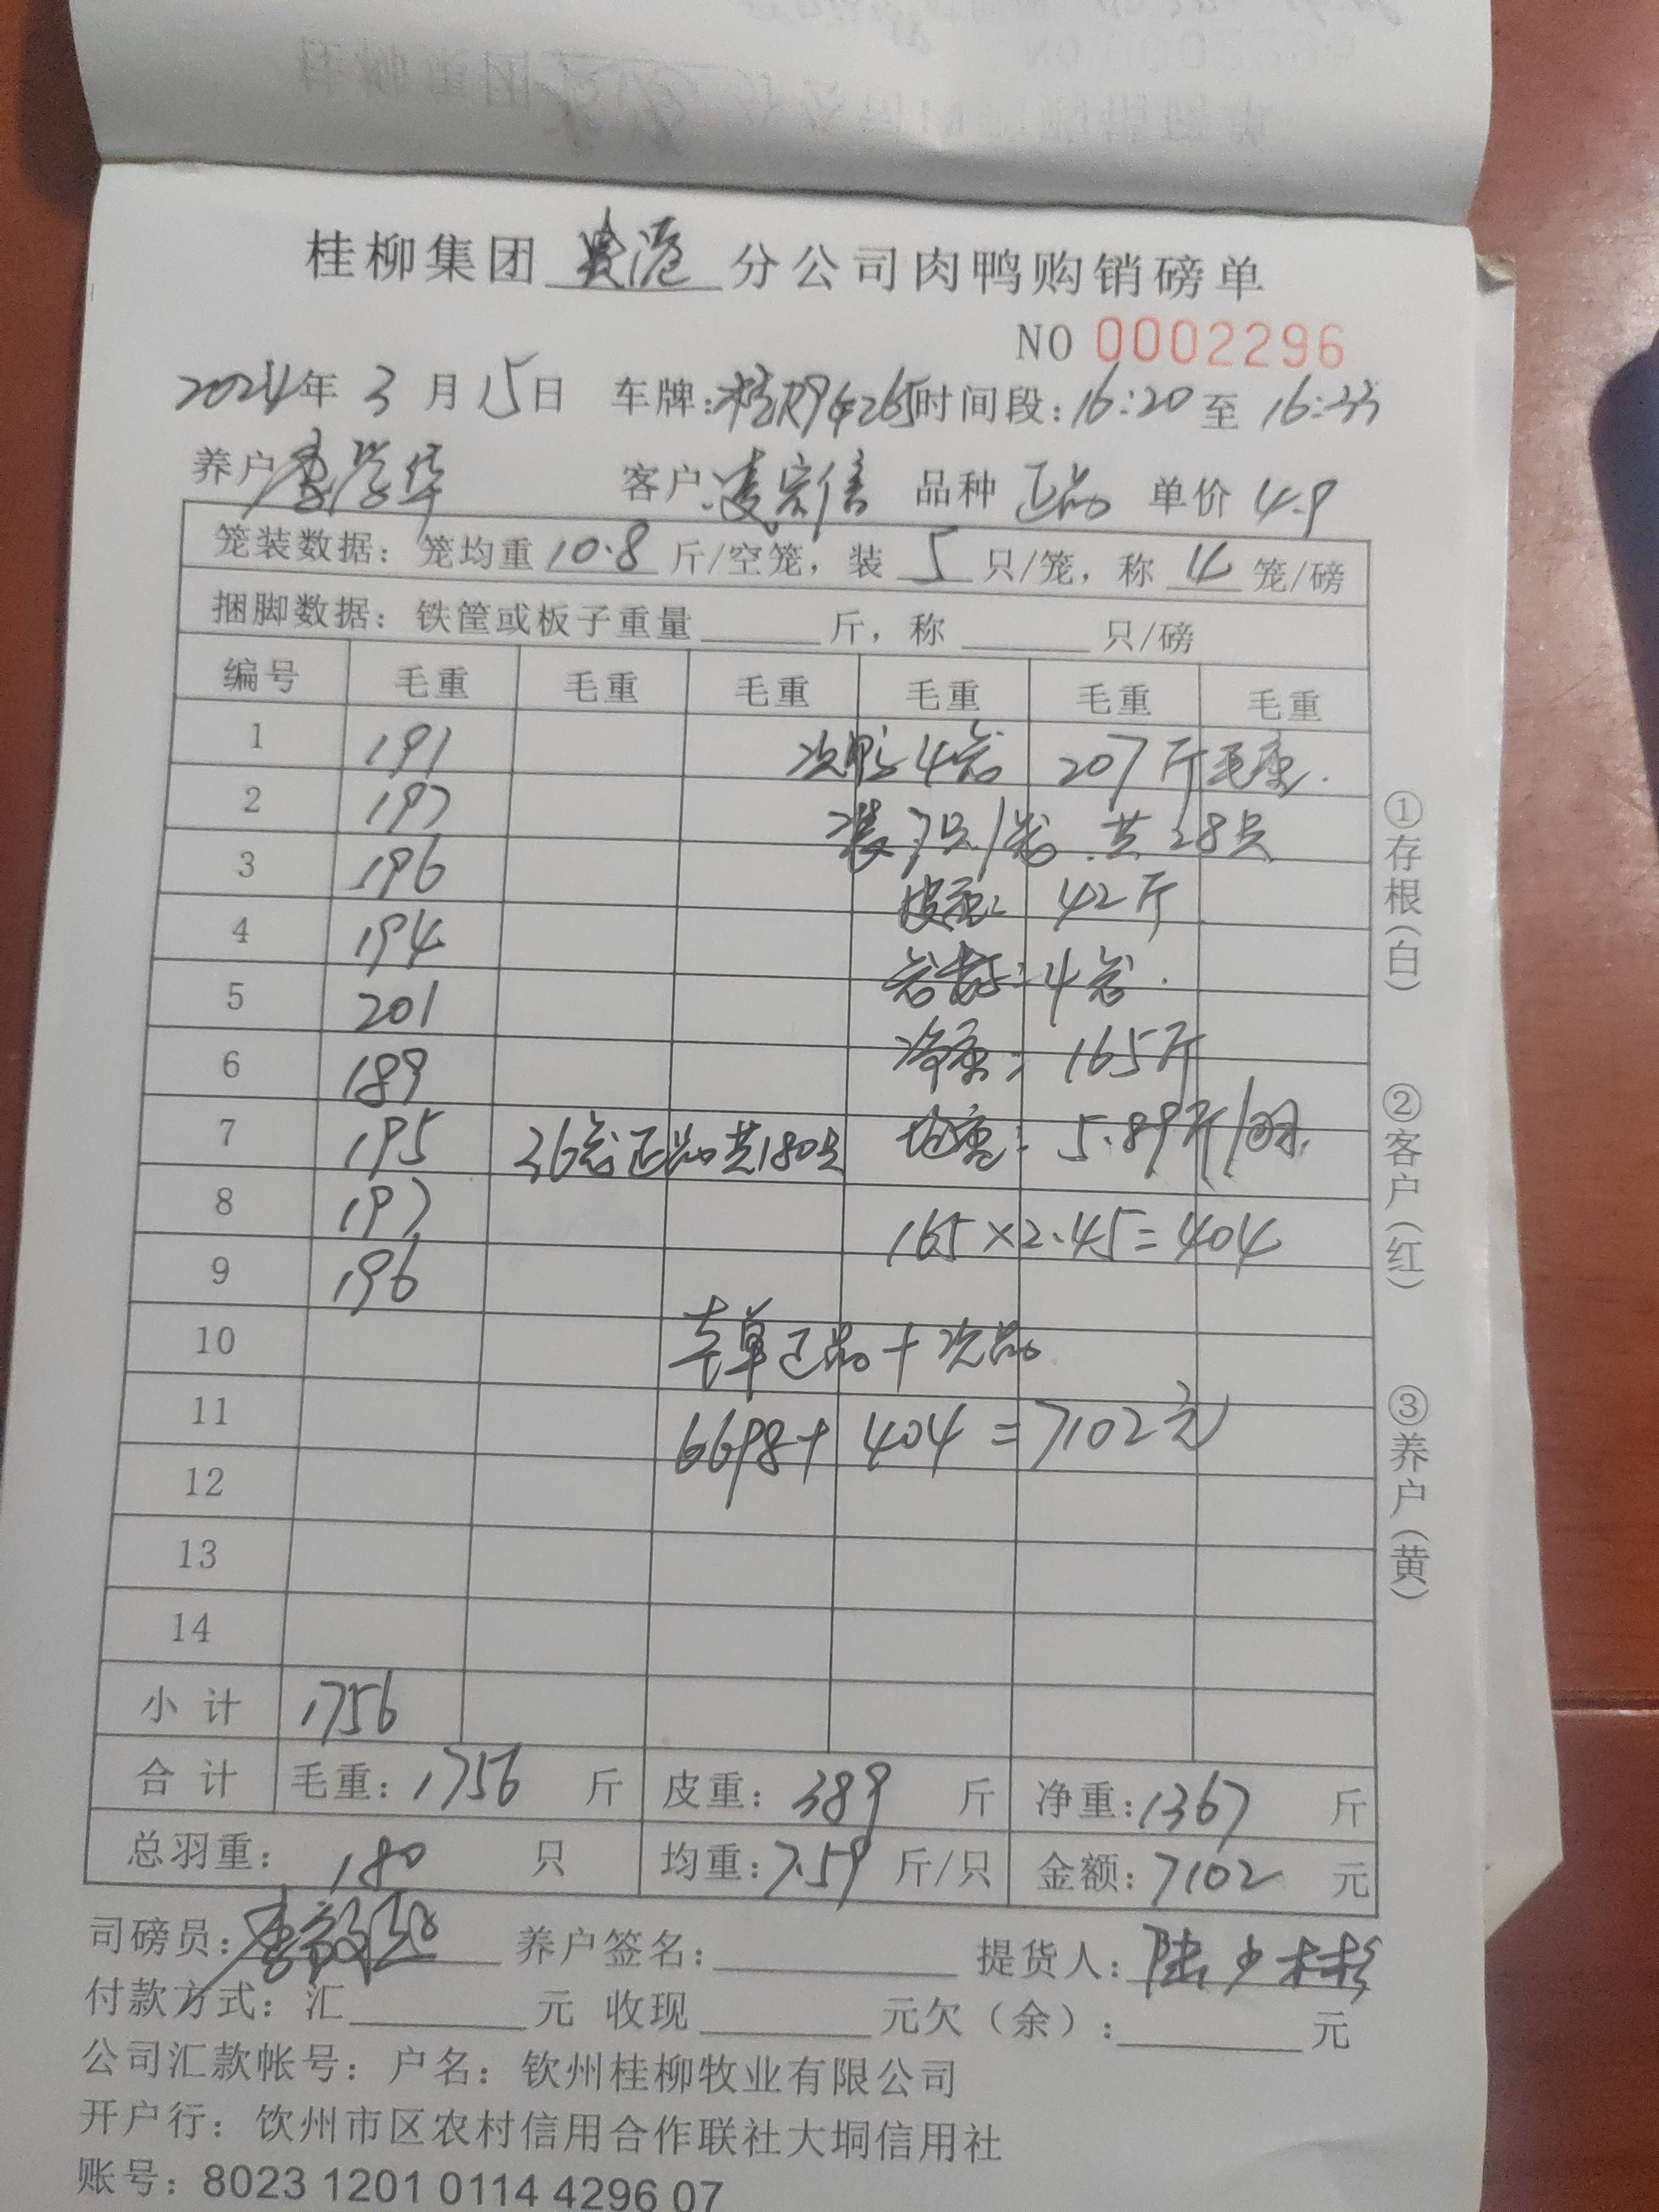 桂柳集团贵港分公司肉鸭购销磅单
NO 0002296
2024年 3 月 15日 车牌: 时间段:16:20 至 16:33
养户 李学华 客户:凌宗信 品种 正品 单价 4.9
笼装数据：笼均重 10.8 斤/空笼，装 5 只/笼，称 4 笼/磅
捆脚数据：铁筐或板子重量 斤，称 只/磅
编号 毛重 毛重 毛重 毛重 毛重 毛重
1 191 次 4 207斤毛重.
2 197 装7只/ 共28只
3 196 皮重: 42斤
4 194 : 4
5 201
6 189 净重: 165斤
7 195 36 正品共180只 均重: 5.89斤/羽.
8 197 165×2.45=404
9 196
10 本单正品+次品
11 6698+404=7102元
12
13
14
小计 1756
合计 毛重: 1756 斤 皮重: 389 斤 净重:1367 斤
总羽重: 180 只 均重:7.59 斤/只 金额:7102 元
司磅员: 养户签名: 提货人:陆少彬
付款方式: 汇 元 收现 元欠（余）: 元
公司汇款帐号：户名：钦州桂柳牧业有限公司
开户行：饮州市区农村信用合作联社大垌信用社
账号：8023 1201 0114 4296 07
①存根（白）
②客户（红）
③养户（黄）